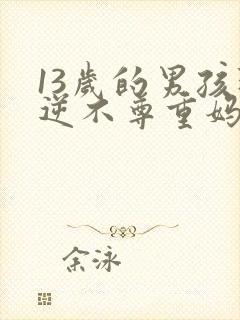 13岁的男孩
逆不尊重妈
余泳